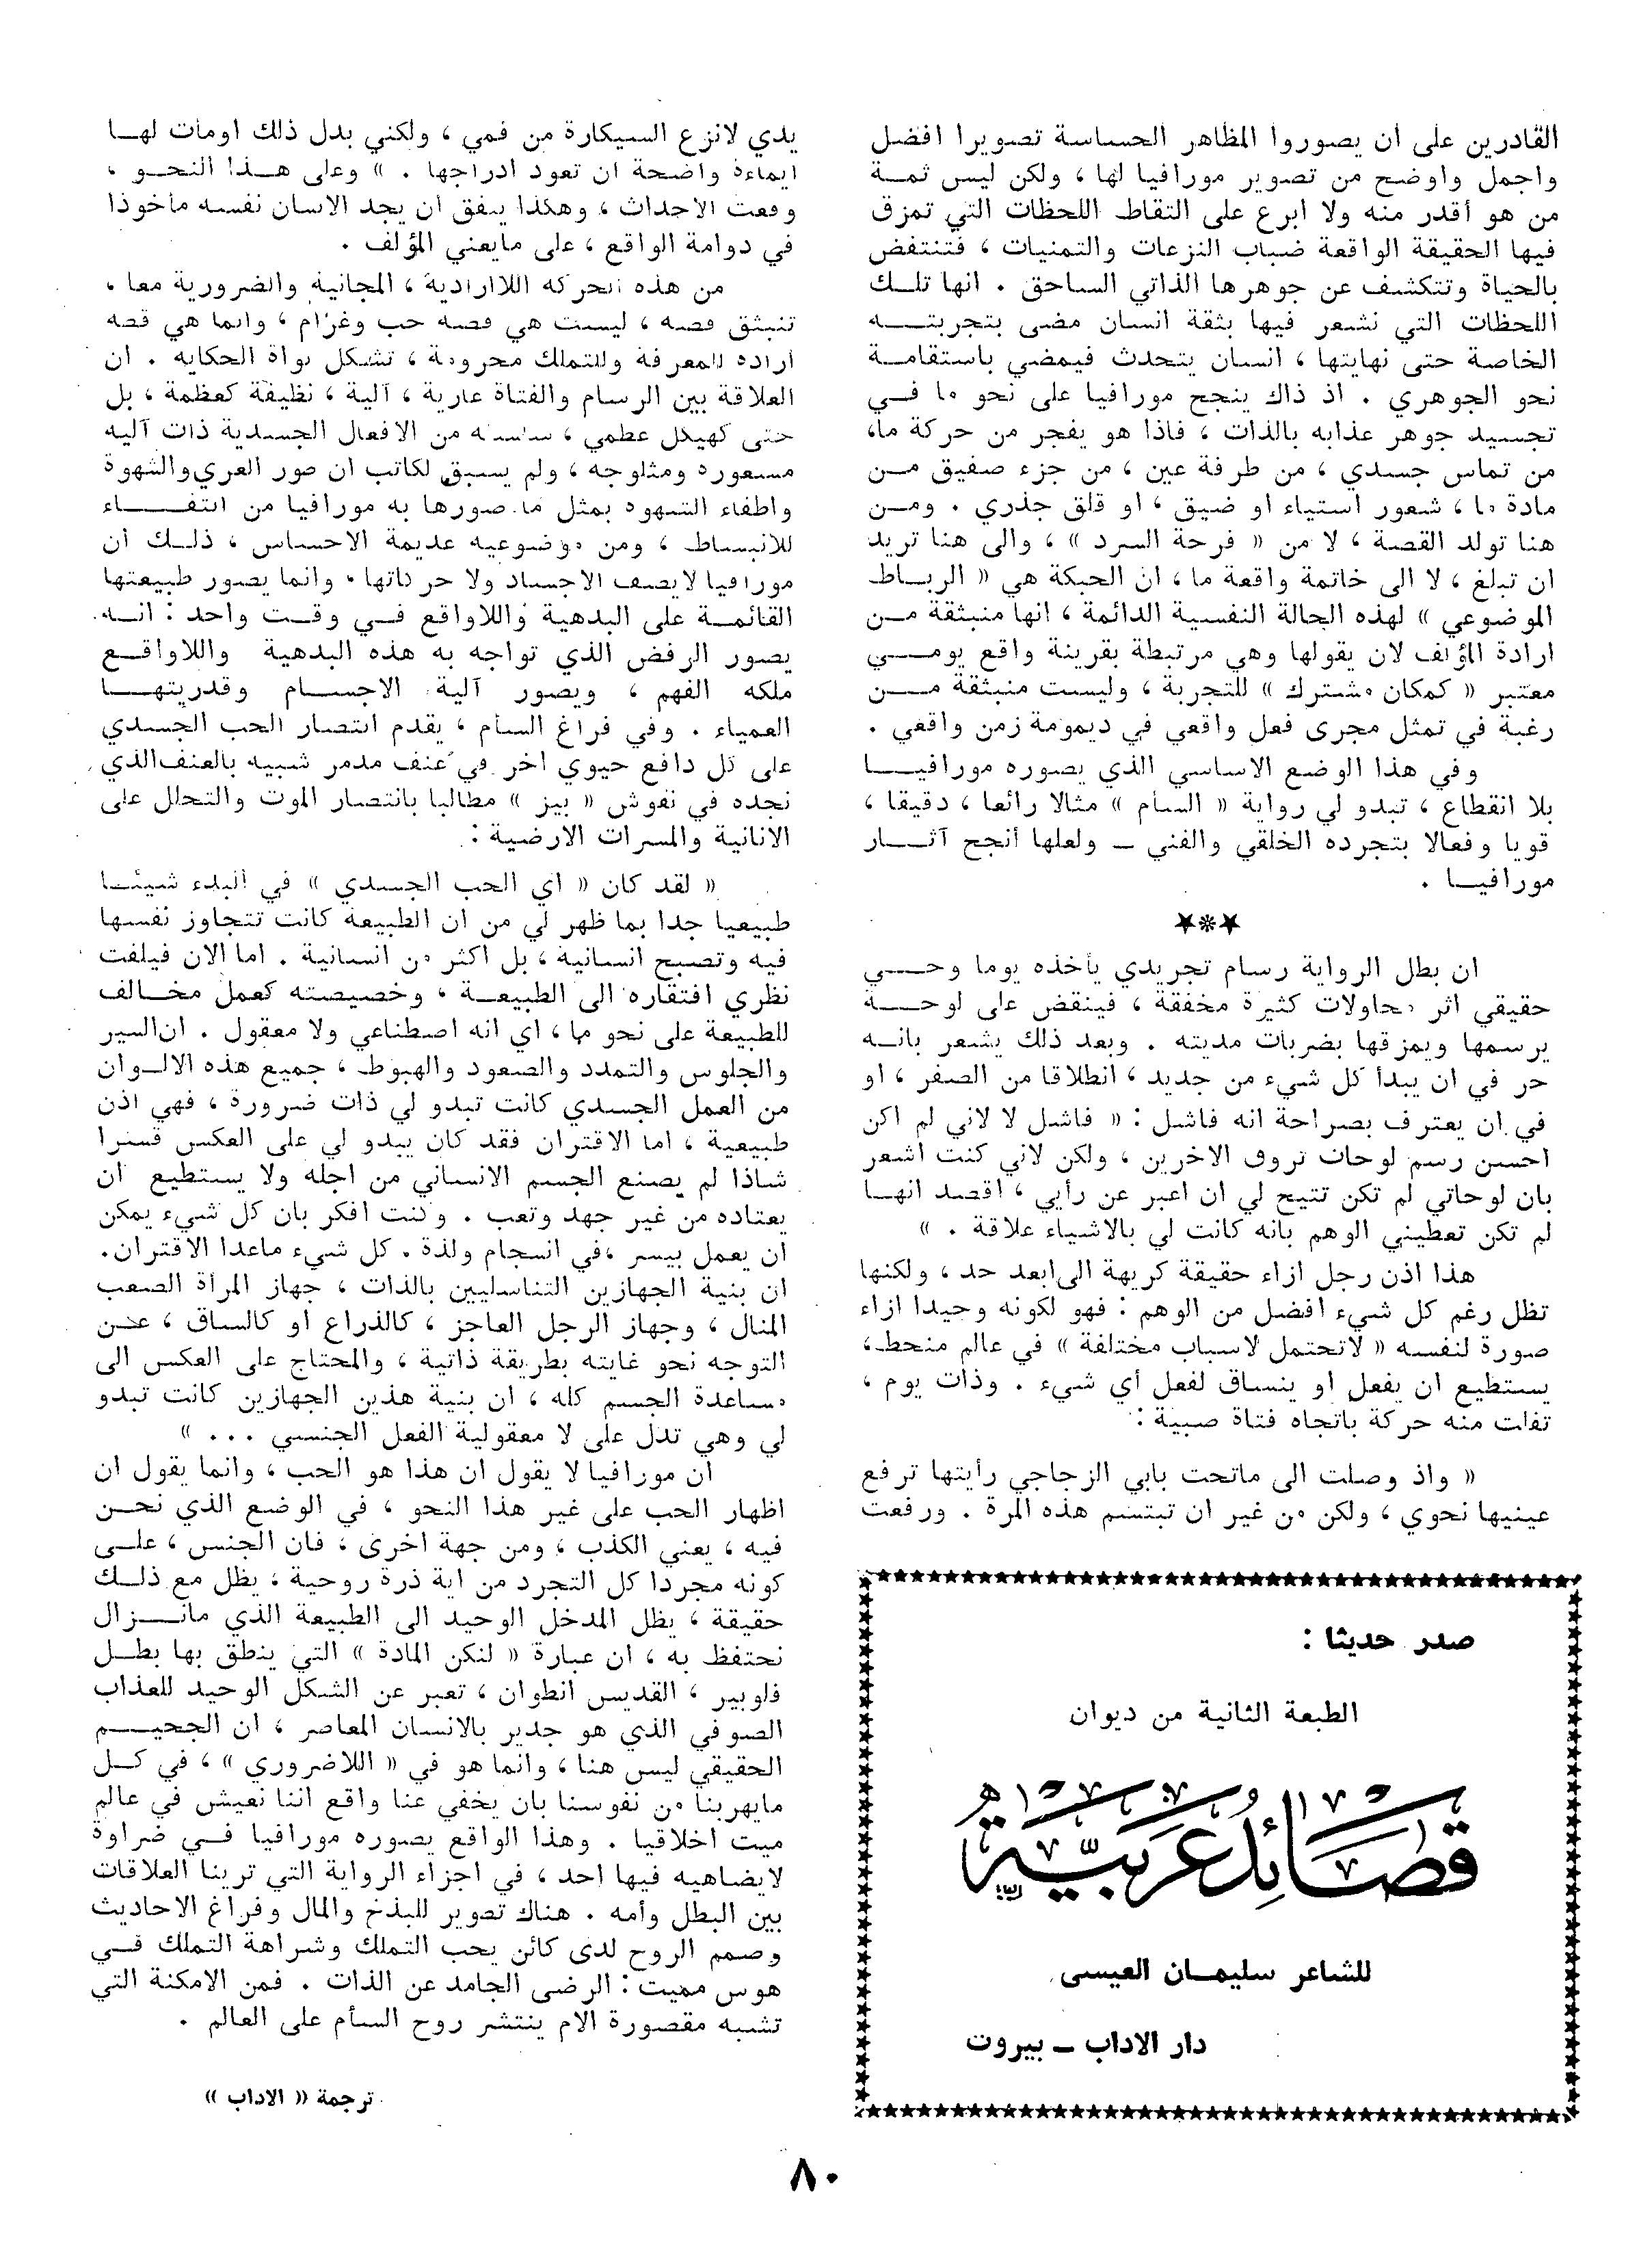 القادرين على أن يصوروا المظاهر الحساسة تصويرا افضل
واجمل واوضح من تصوير مورافيا لها ، ولكن ليس ثمة
من هو أقدر منه ولا ابرع على التقاط اللحظات التي تمزق
فيها الحقيقة الواقعة ضباب النزعات والتمنيات ، فتنتفض
بالحياة وتتكشف عن جوهرها الذاتي الساحق . انها تلك
اللحظات التي نشعر فيها بثقة انسان مضى بتجربته
الخاصة حتى نهايتها ، انسان يتحدث فيمضي باستقامة
نحو الجوهري . اذ ذاك ينجح مورافيا على نحو ما في
تجسيد جوهر عذابه بالذات ، فاذا هو يفجر من حركة ما،
من تماس جسدي ، من طرفة عين ، من جزء صفيق من
مادة ما ، شعور استياء او ضيق ، او قلق جذري . ومن
هنا تولد القصة ، لا من « فرحة السرد » ، والى هنا تريد
ان تبلغ ، لا الى خاتمة واقعة ما ، ان الحبكة هي « الرباط
الموضوعي » لهذه الحالة النفسية الدائمة ، انها منبثقة من
ارادة المؤلف لان يقولها وهي مرتبطة بقرينة واقع يومي
معتبر « كمكان مشترك » للتجربة ، وليست منبثقة من
رغبة في تمثل مجرى فعل واقعي في ديمومة زمن واقعي .
وفي هذا الوضع الاساسي الذي يصوره مورافيا
بلا انقطاع ، تبدو لي رواية « السأم » مثالا رائعا ، دقيقا ،
قويا وفعالا بتجرده الخلقي والفني ــ ولعلها أنجح آثار
مورافيا .
★*★
ان بطل الرواية رسام تجريدي يأخذه يوما وحي
حقيقي اثر محاولات كثيرة مخفقة ، فينقض على لوحة
يرسمها ويمزقها بضربات مديته . وبعد ذلك يشعر بانه
حر في ان يبدأ كل شيء من جديد ، انطلاقا من الصفر ، او
في ان يعترف بصراحة انه فاشل : « فاشل لا لاني لم اكن
احسن رسم لوحات تروق الاخرين ، ولكن لاني كنت اشعر
بان لوحاتي لم تكن تتيح لي ان اعبر عن رأيي ، اقصد انها
لم تكن تعطيني الوهم بانه كانت لي بالاشياء علاقة . »
هذا اذن رجل ازاء حقيقة كريهة الى ابعد حد ، ولكنها
تظل رغم كل شيء افضل من الوهم : فهو لكونه وحيدا ازاء
صورة لنفسه « لاتحتمل لاسباب مختلفة » في عالم منحط،
يستطيع ان يفعل او ينساق لفعل أي شيء . وذات يوم ،
تفلت منه حركة باتجاه فتاة صبية :
« واذ وصلت الى ماتحت بابي الزجاجي رأيتها ترفع
عينيها نحوي ، ولكن من غير ان تبتسم هذه المرة . ورفعت
صدر حديثا :
الطبعة الثانية من ديوان
قصائد عربية
للشاعر سليمان العيسى
دار الاداب ــ بيروت
يدي لانزع السيكارة من فمي ، ولكني بدل ذلك اومأت لها
ايماءة واضحة ان تعود ادراجها . » وعلى هذا النحو ،
وقعت الاحداث ، وهكذا يتفق ان يجد الانسان نفسه مأخوذا
في دوامة الواقع ، على مايعني المؤلف .
من هذه الحركة اللاارادية ، المجانية والضرورية معا ،
تنبثق قصة ، ليست هي قصة حب وغرام ، وانما هي قصة
ارادة للمعرفة وللتملك محرومة ، تشكل نواة الحكاية . ان
العلاقة بين الرسام والفتاة عارية ، آلية ، نظيفة كعظمة ، بل
حتى كهيكل عظمي ، سلسلة من الافعال الجسدية ذات آلية
مسعورة ومثلوجة ، ولم يسبق لكاتب ان صور العري والشهوة
واطفاء الشهوة بمثل ما صورها به مورافيا من انتفاء
للانبساط ، ومن موضوعية عديمة الاحساس ، ذلك أن
مورافيا لايصف الاجساد ولا حركاتها ، وانما يصور طبيعتها
القائمة على البدهية واللاواقع في وقت واحد : انه
يصور الرفض الذي تواجه به هذه البدهية واللاواقع
ملكة الفهم ، ويصور آلية الاجسام وقدريتها
العمياء . وفي فراغ السأم ، يقدم انتصار الحب الجسدي
على كل دافع حيوي اخر في عنف مدمر شبيه بالعنف الذي
نجده في نقوش « بيز » مطالبا بانتصار الموت والتحلل على
الانانية والمسرات الارضية :
« لقد كان « اي الحب الجسدي » في البدء شيئا
طبيعيا جدا بما ظهر لي من ان الطبيعة كانت تتجاوز نفسها
فيه وتصبح انسانية ، بل اكثر من انسانية . اما الان فيلفت
نظري افتقاره الى الطبيعة ، وخصيصته كعمل مخالف
للطبيعة على نحو ما ، اي انه اصطناعي ولا معقول . ان السير
والجلوس والتمدد والصعود والهبوط ، جميع هذه الالوان
من العمل الجسدي كانت تبدو لي ذات ضرورة ، فهي اذن
طبيعية ، اما الاقتران فقد كان يبدو لي على العكس قسرا
شاذا لم يصنع الجسم الانساني من اجله ولا يستطيع ان
يعتاده من غير جهد وتعب . وكنت افكر بان كل شيء يمكن
ان يعمل بيسر ،في انسجام ولذة . كل شيء ماعدا الاقتران.
ان بنية الجهازين التناسليين بالذات ، جهاز المرأة الصعب
المنال ، وجهاز الرجل العاجز ، كالذراع او كالساق ، عن
التوجه نحو غايته بطريقة ذاتية ، والمحتاج على العكس الى
مساعدة الجسم كله ، ان بنية هذين الجهازين كانت تبدو
لي وهي تدل على لا معقولية الفعل الجنسي ... »
ان مورافيا لا يقول ان هذا هو الحب ، وانما يقول ان
اظهار الحب على غير هذا النحو ، في الوضع الذي نحن
فيه ، يعني الكذب ، ومن جهة اخرى ، فان الجنس ، على
كونه مجردا كل التجرد من اية ذرة روحية ، يظل مع ذلك
حقيقة ، يظل المدخل الوحيد الى الطبيعة الذي مانزال
نحتفظ به ، ان عبارة « لنكن المادة » التي ينطق بها بطل
فلوبير ، القديس انطوان ، تعبر عن الشكل الوحيد للعذاب
الصوفي الذي هو جدير بالانسان المعاصر ، ان الجحيم
الحقيقي ليس هنا ، وانما هو في « اللاضروري » ، في كل
مايهربنا من نفوسنا بان يخفي عنا واقع اننا نعيش في عالم
ميت اخلاقيا . وهذا الواقع يصوره مورافيا في ضراوة
لايضاهيه فيها احد ، في اجزاء الرواية التي ترينا العلاقات
بين البطل وأمه . هناك تصوير للبذخ والمال وفراغ الاحاديث
وصمم الروح لدى كائن يحب التملك وشراهة التملك في
هوس مميت : الرضى الجامد عن الذات . فمن الامكنة التي
تشبه مقصورة الام ينتشر روح السأم على العالم .
ترجمة « الاداب »
٨٠